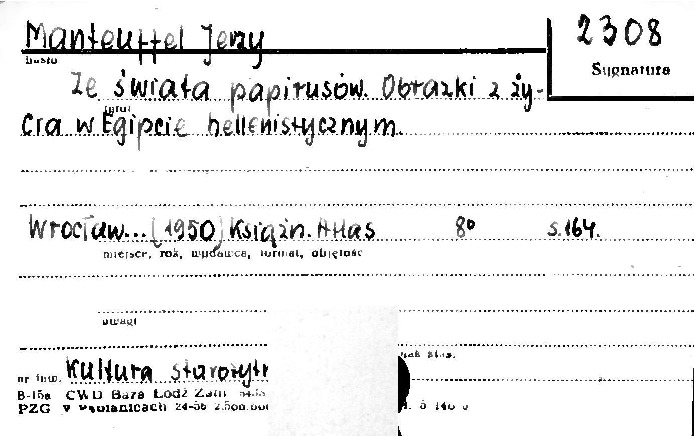 Manteuffel Jerzy
2308
hasło
Sygnatura
Ze świata papirusów. Obrazki z ży-
tytuł
cia w Egipcie hellenistycznym.
Wrocław... [1950] Książn. Atlas 8° s.164.
miejsce, rok, wydawca, format, objętość
uwagi
nr inw. Kultura starożytn
B-15a CWD Baza Łódź Zam
PZG w Pabianicach 24-56 2.500.000